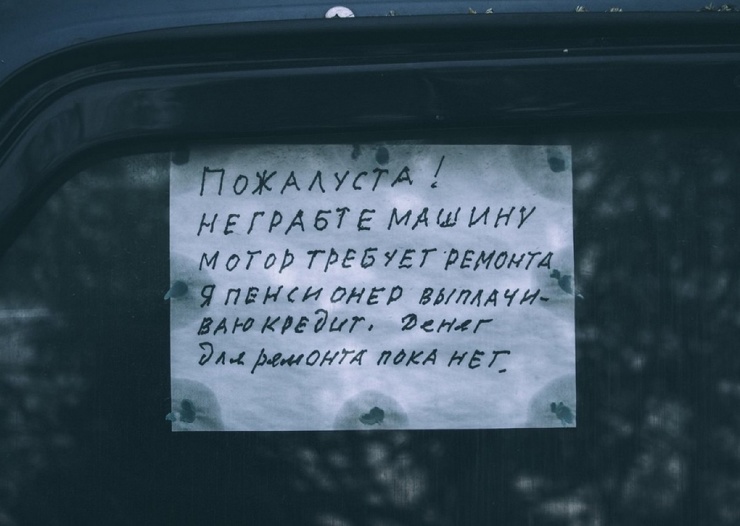 ПОЖАЛУСТА!
НЕ ГРАБТЕ МАШИНУ
МОТОР ТРЕБУЕТ РЕМОНТА
Я ПЕНСИОНЕР ВЫПЛАЧИ-
ВАЮ КРЕДИТ. Денег
для ремонта пока нет.